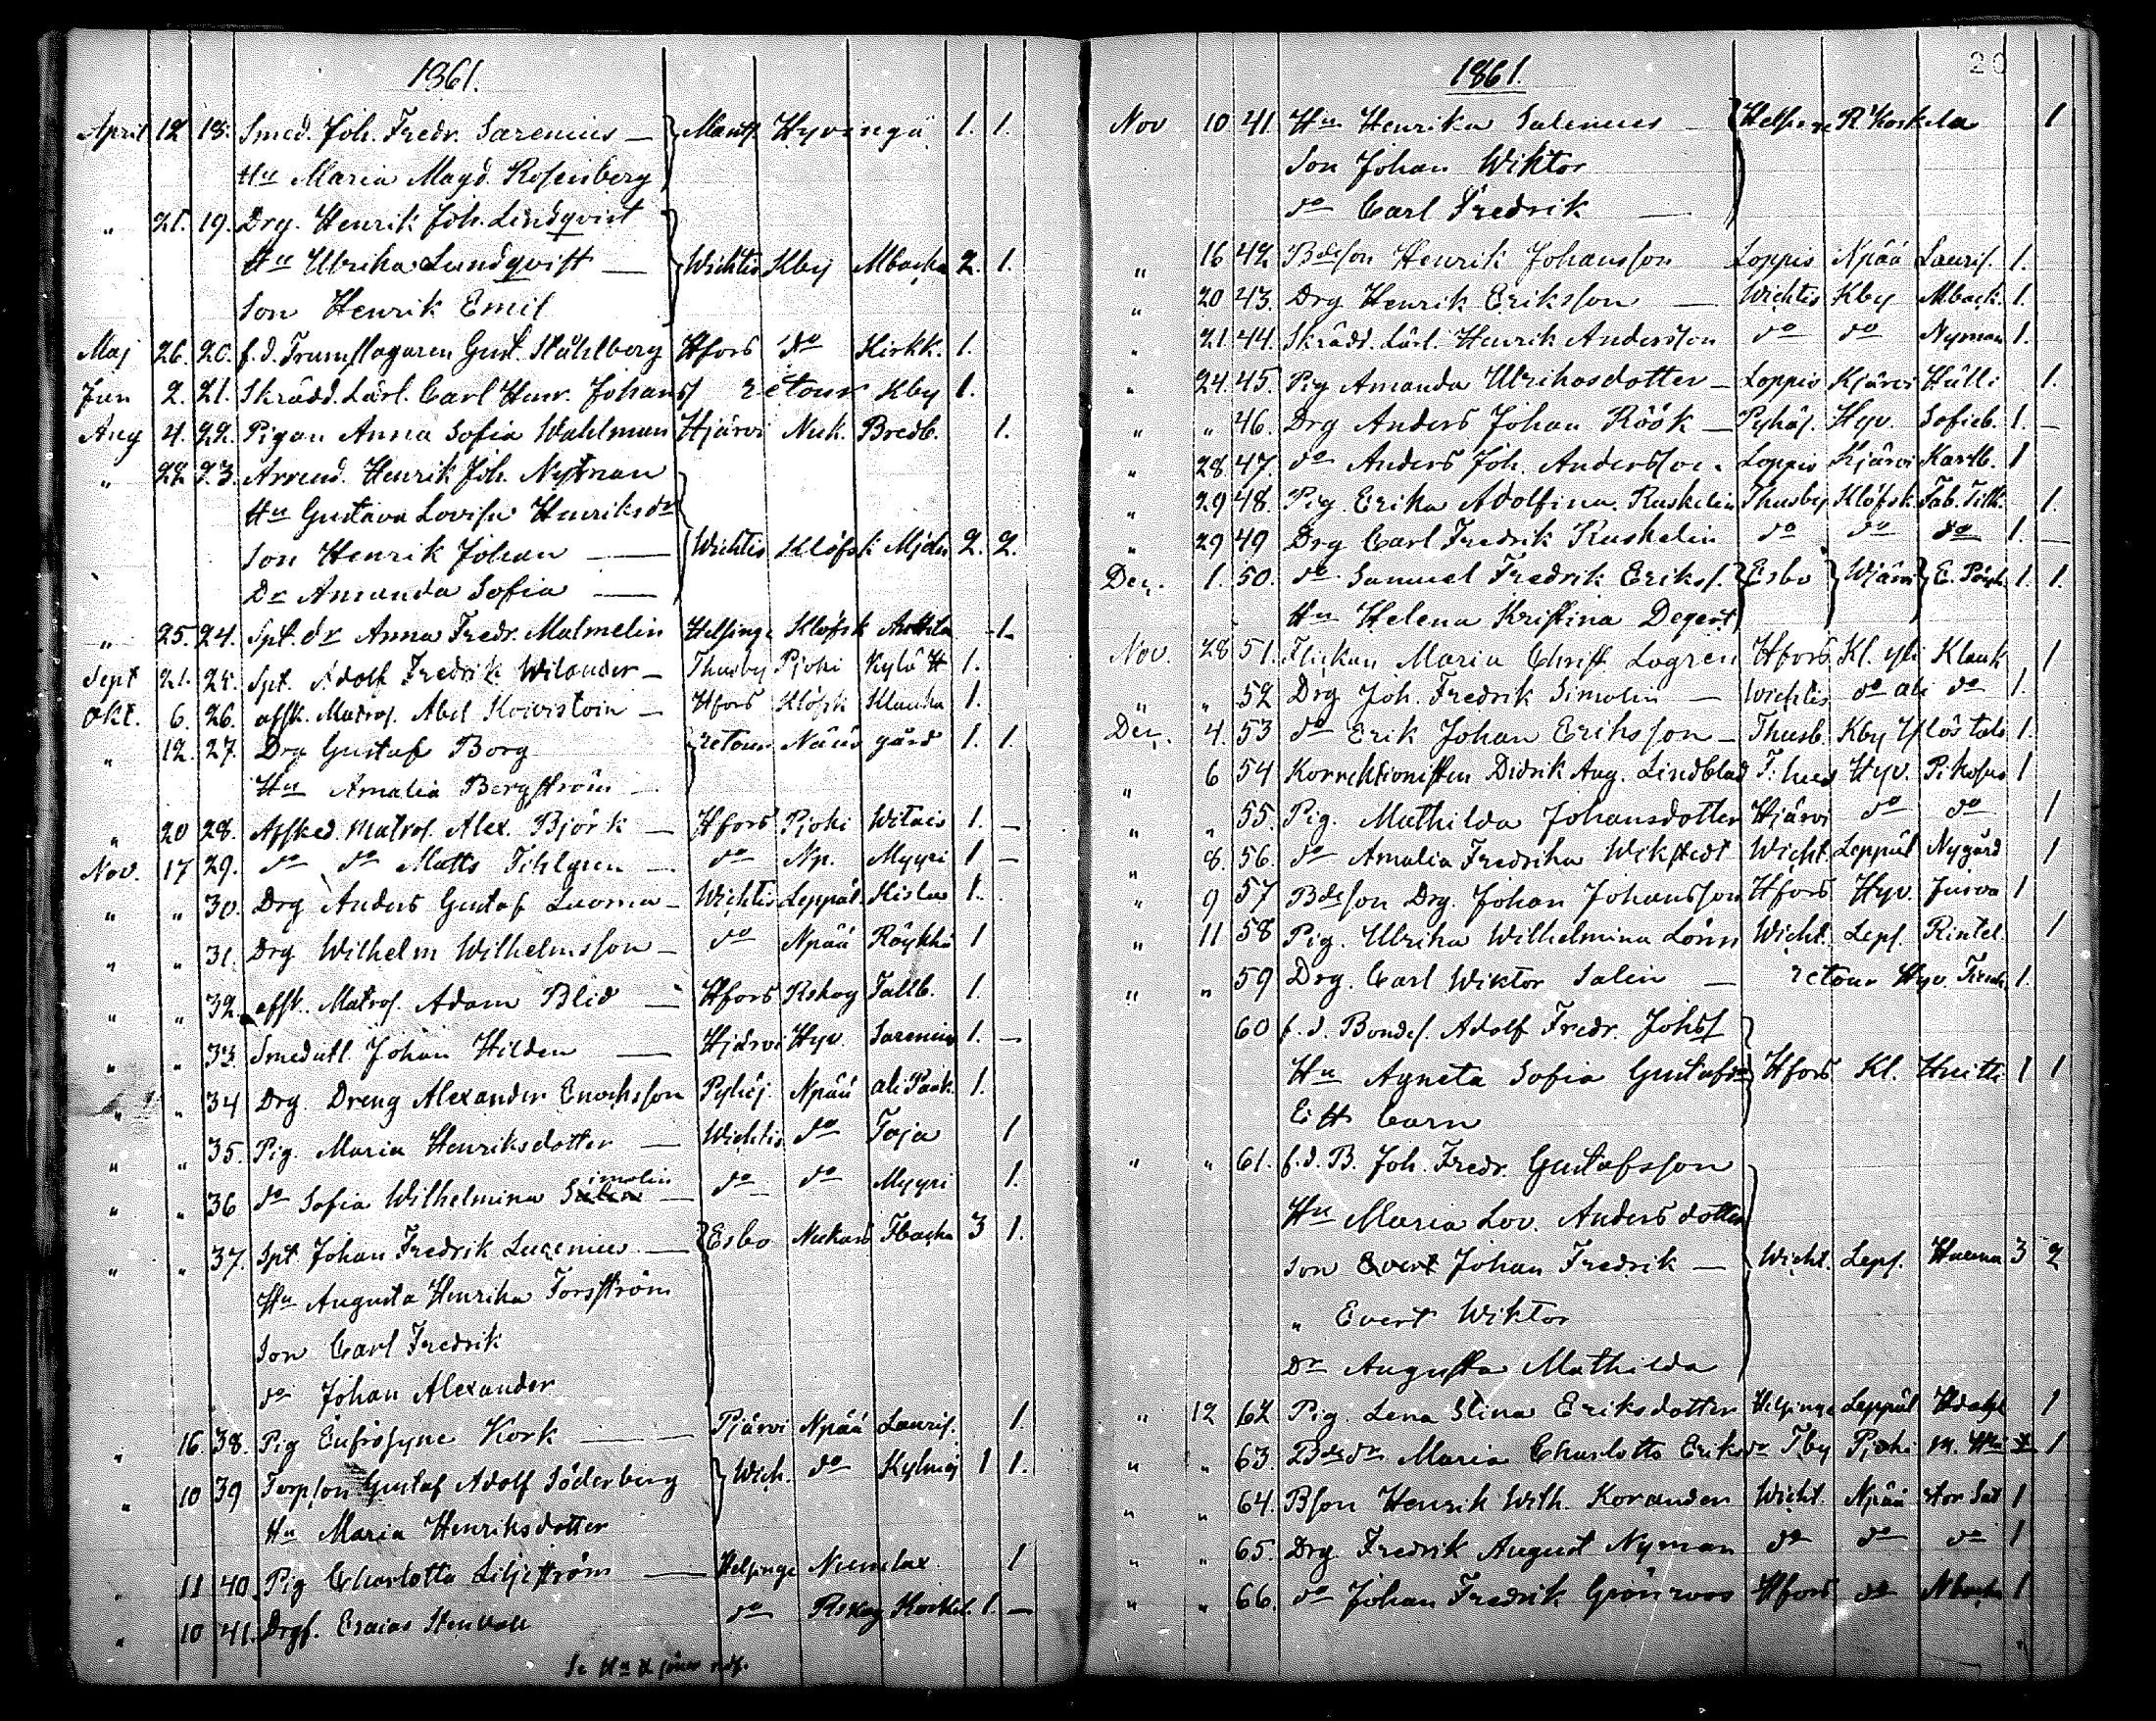 1861.
April 12 18. Smed. Joh. Fredr. Sarenius — Mants. Hyvinge 1. 1.
Hu Maria Magd. Rosenberg
" 21. 19. Drg. Henrik Joh. Lindqvist
Hu Ulrika Lundqvist — Wichtis Kby Mbacka 2. 1.
Son Henrik Emil
Maj 26. 20. f.d. Trumslagaren Gust. Ståhlberg Hfors do Kirkk. 1.
Jun 2. 21. Skrädd. Lärl. Carl Henr. Johanss retour Kby 1.
Aug 4. 22. Pigan Anna Sofia Wahlman Hjärvi Nuk. Bredb. 1.
" 22 23. Arrend. Henrik Joh. Nyman
Hu Gustava Lovisa Henriksdr
Son Henrik Johan — Wichtis Klöfsk Mjdu 2. 2.
Dr Amanda Sofia —
" 25. 24. Spt. dr Anna Fredr. Malmelin Helsinge Klöfsk Anttila 1
Sept 21. 25. Spt. Adolf Fredrik Wilander — Thusby Pjoki Kylä H 1.
Okt. 6. 26. afsk. Matros. Abel Koivistoin — Hfors Klöfsk Klauka 1.
" 12. 27. Drg Gustaf Borg retour Näås gård 1. 1.
Hu Amalia Bergström —
" 20 28. Afsked. Matros. Alex. Björk — Hfors Pjoki Witais 1. —
Nov. 17 29. do do Matts Fihlgren — do Np. Myyri 1 —
" " 30. Drg Anders Gustaf Luoma — Wichtis Leppäl Kislas 1.
" " 31. Drg Wilhelm Wilhelmsson — do Npää Röykkä 1
" " 32. afsk. Matros. Adam Blid — Hfors Rskog Tallb. 1.
" " 33. Smedutl. Johan Hilden — Hjärvi Hyv. Sarenius 1. —
" " 34 Drg. Dreng Alexander Enochsson Pyhäj. Npää ali Paak. 1.
" " 35. Pig. Maria Henriksdotter — Wichtis do Toja 1
" " 36 do Sofia Wilhelmina Simolin — do do Myyri 1.
" " 37. Spt. Johan Fredrik Lucenius — Esbo Nukars Tbacka 3 1.
Hu Augusta Henrika Forsström
Son Carl Fredrik
do Johan Alexander
" 16 38. Pig Eufrosyne Kork — Pjärvi Npää Lauris. 1.
" 10 39 Torpson Gustaf Adolf Söderberg Wich. do Kylmäj 1 1.
Hu Maria Henriksdotter
" 11 40 Pig Charlotta Liljeström — Helsinge Numlax 1
" 10 41. Drgs. Esaias Stenvall do Rskog Koskel. 1. —
Se Hu & söner

20
1861.
Nov 10 41 Hu Henrika Salenius Helsinge R. Koskela 1
Son Johan Wiktor
do Carl Fredrik —
" 16 42 Bdeson Henrik Johansson Loppis Npää Lauris. 1.
" 20 43. Drg Henrik Eriksson — Wichtis Kby Mback. 1.
" 21. 44. Skrädd. Lärl. Henrik Andersson do do Nyman 1.
" 24. 45. Pig Amanda Ulrikasdotter — Loppis Kjärvi Hälli 1.
" " 46. Drg Anders Johan Röök — Pyhäj. Hyv. Sofieb. 1. —
" 28 47. do Anders Joh. Andersson. Loppis Kjärvi Karlb. 1
" 29 48. Pig. Erika Adolfina Ruskelin Thusby Klöfsk. Tab. Tilk. 1.
" 29 49 Drg Carl Fredrik Ruskelin do do do 1. —
Dec. 1. 50. do Samuel Fredrik Erikss. Esbo Wjärvi E. Pöyh. 1. 1.
Hu Helena Kristina Degert
Nov. 28 51. Flickan Maria Christ. Lagren Hfors Kl. yli Klauk 1
" " 52 Drg Joh. Fredrik Simolin — Wichtis do ali do 1.
Dec. 4. 53 do Erik Johan Eriksson — Thusb. Kby Ylöstalo 1.
" 6 54 Korrektionisten Didrik Aug. Lindblad T. hus Hyv. Pikofes 1
" " 55. Pig. Mathilda Johansdotter Hjärvi do do 1
" 8. 56. do Amalia Fredrika Wikstedt Wicht. Leppäl Nygård 1
" 9 57 Bdeson Drg. Johan Johansson Hfors Hyv. Jurva 1
" 11 58 Pig. Ulrika Wilhelmina Lönn Wicht. Leps. Rintel. 1
" " 59 Drg. Carl Wiktor Salin — retour Hyv. 1.
60 f.d. Bondes. Adolf Fredr. Johss
Hu Agneta Sofia Gustafsdr Hfors Kl. Huitti 1 1
Ett Barn
" " 61. f.d. B. Joh. Fredr. Gustafsson
Hu Maria Lov. Andersdotter
Son Evert Johan Fredrik — Wicht. Leps. 3 2
" Evert Wiktor
Dr Augusta Mathilda
" 12 62 Pig. Lena Stina Eriksdotter Helsinge Leppäl Hdahl 1
" " 63. Bdedr Maria Charlotta Eriksdr Tby Pjoki 1
" " 64. Bson Henrik Wilh. Korander Wicht. Npää 1
" " 65. Drg Fredrik August Nyman do do do 1
" " 66. do Johan Fredrik Grönroos Hfors do Nbacka 1